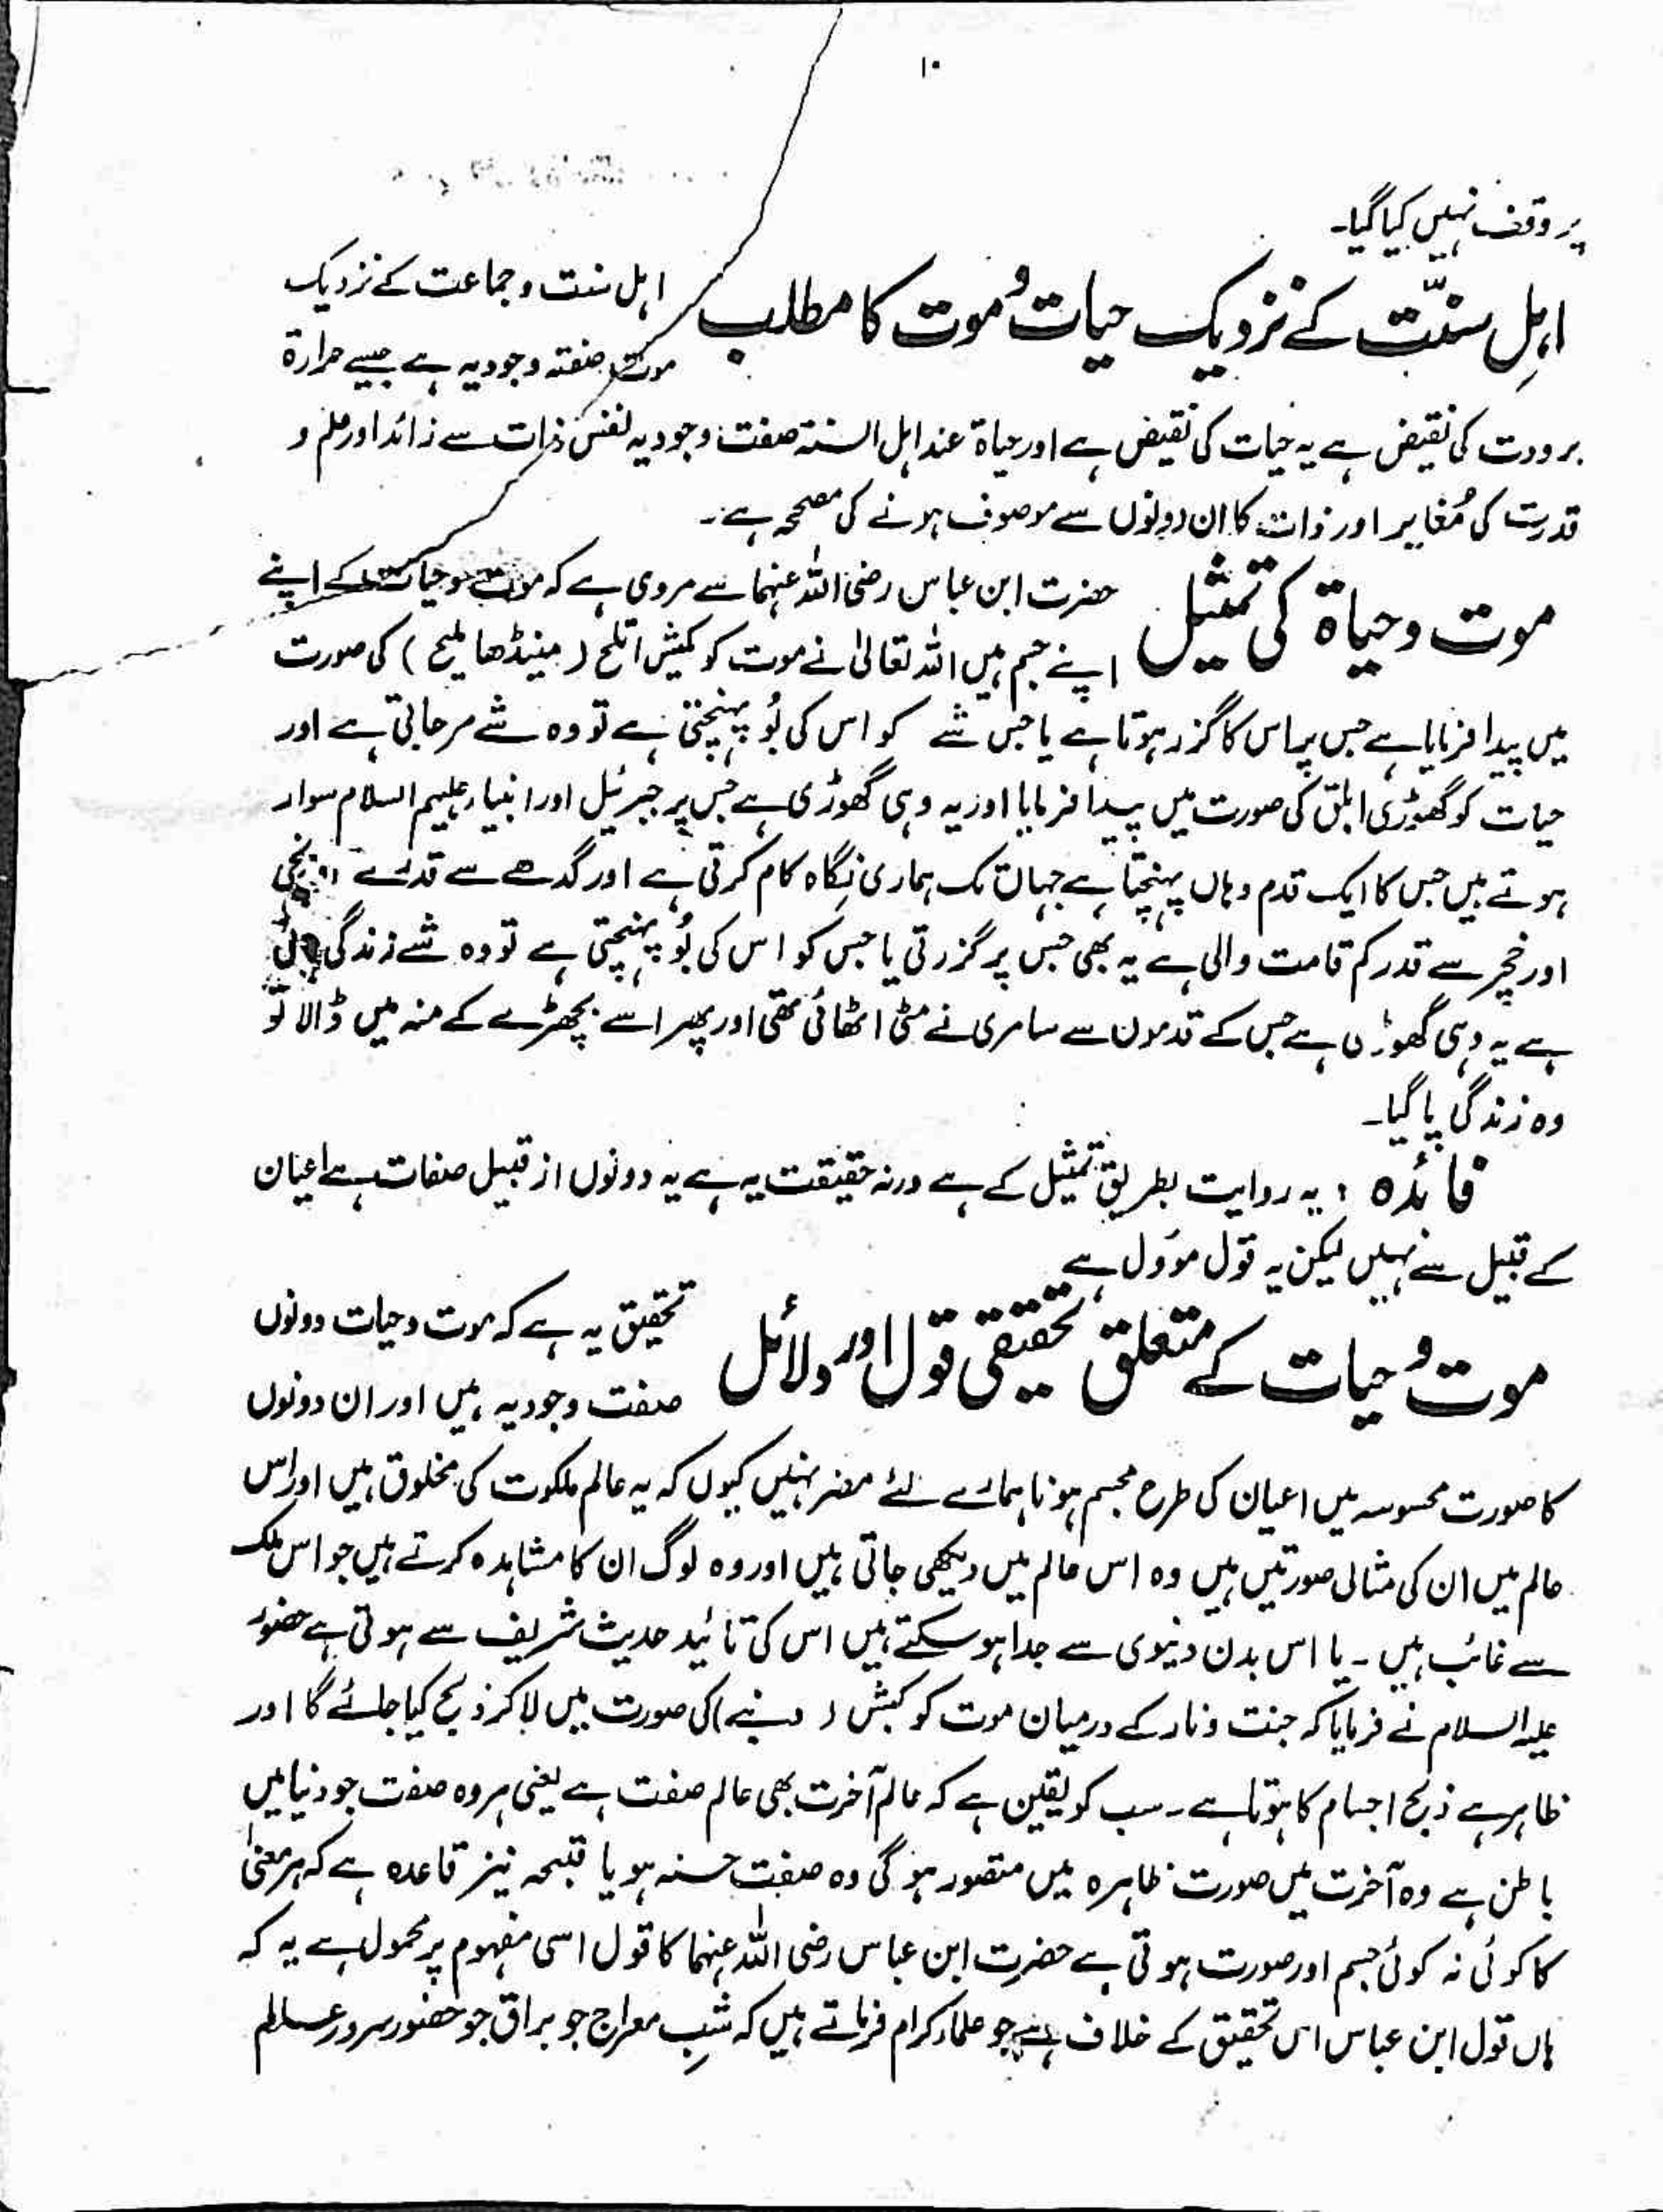 ۱۰
پر وقف نہیں کیا گیا۔
اہلِ سنّت کے نزدیک حیات وُ موت کا مطلب
اہل سنت و جماعت کے نزدیک
موت صفتہ وجودیہ ہے جیسے حرارۃ
برودت کی نقیض ہے یہ حیات کی نقیض ہے اور حیاۃ عند اہل السنتہ صفت وجودیہ نفس ذات سے زائد اور علم و
قدرت کی مُغایر اور ذات کا ان دونوں سے موصوف ہونے کی مصححہ ہے۔
موت و حیاۃ کی تمثیل
حضرت ابن عباس رضی اللہ عنہما سے مروی ہے کہ موت و حیات کے اپنے
اپنے جسم ہیں اللہ تعالیٰ نے موت کو کبش املح ( مینڈھا ملیح ) کی صورت
میں پیدا فرمایا ہے جس پر اس کا گزر ہوتا ہے یا جس شے کو اس کی بُو پہنچتی ہے تو وہ شے مر جاتی ہے اور
حیات کو گھوڑی ابلق کی صورت میں پیدا فرمایا اور یہ وہی گھوڑی ہے جس پر جبرئیل اور انبیاء علیہم السلام سوار
ہوتے ہیں جس کا ایک قدم وہاں پہنچتا ہے جہاں تک ہماری نگاہ کام کرتی ہے اور گدھے سے قدرے اونچی
اور خچر سے قدر کم قامت والی ہے یہ بھی جس پر گزرتی یا جس کو اس کی بُو پہنچتی ہے تو وہ شے زندگی پاتی
ہے یہ وہی گھوڑی ہے جس کے قدموں سے سامری نے مٹی اٹھائی تھی اور پھر اسے بچھڑے کے منہ میں ڈالا تو
وہ زندگی پا گیا۔
فائدہ : یہ روایت بطریق تمثیل کے ہے ورنہ حقیقت یہ ہے یہ دونوں از قبیل صفات ہے اعیان
کے قبیل سے نہیں لیکن یہ قول مؤول ہے
موت وُ حیات کے متعلق تحقیقی قول اور دلائل
تحقیق یہ ہے کہ موت و حیات دونوں
صفت وجودیہ ہیں اور ان دونوں
کا صورت محسوسہ میں اعیان کی طرح مجسم ہونا ہمارے لئے مضر نہیں کیوں کہ یہ عالم ملکوت کی مخلوق ہیں اور اس
عالم میں ان کی مثالی صورتیں ہیں وہ اس عالم میں دیکھی جاتی ہیں اور وہ لوگ ان کا مشاہدہ کرتے ہیں جو اس ملک
سے غائب ہیں ۔ یا اس بدن دنیوی سے جدا ہو سکتے ہیں اس کی تائید حدیث شریف سے ہوتی ہے حضور
علیہ السلام نے فرمایا کہ جنت و نار کے درمیان موت کو کبش ( دنبے) کی صورت میں لا کر ذبح کیا جائے گا اور
ظاہر ہے ذبح اجسام کا ہوتا ہے۔ سب کو یقین ہے کہ عالم آخرت بھی عالم صفت ہے یعنی ہر وہ صفت جو دنیا میں
باطن ہے وہ آخرت میں صورت ظاہرہ میں متصور ہو گی وہ صفت حسنہ ہو یا قبیحہ نیز قاعدہ ہے کہ ہر معنیٰ
کا کوئی نہ کوئی جسم اور صورت ہوتی ہے حضرت ابن عباس رضی اللہ عنہما کا قول اسی مفہوم پر محمول ہے یہ کہ
ہاں قول ابن عباس اس تحقیق کے خلاف ہے جو علماء کرام فرماتے ہیں کہ شبِ معراج جو براق جو حضور سرور عالم